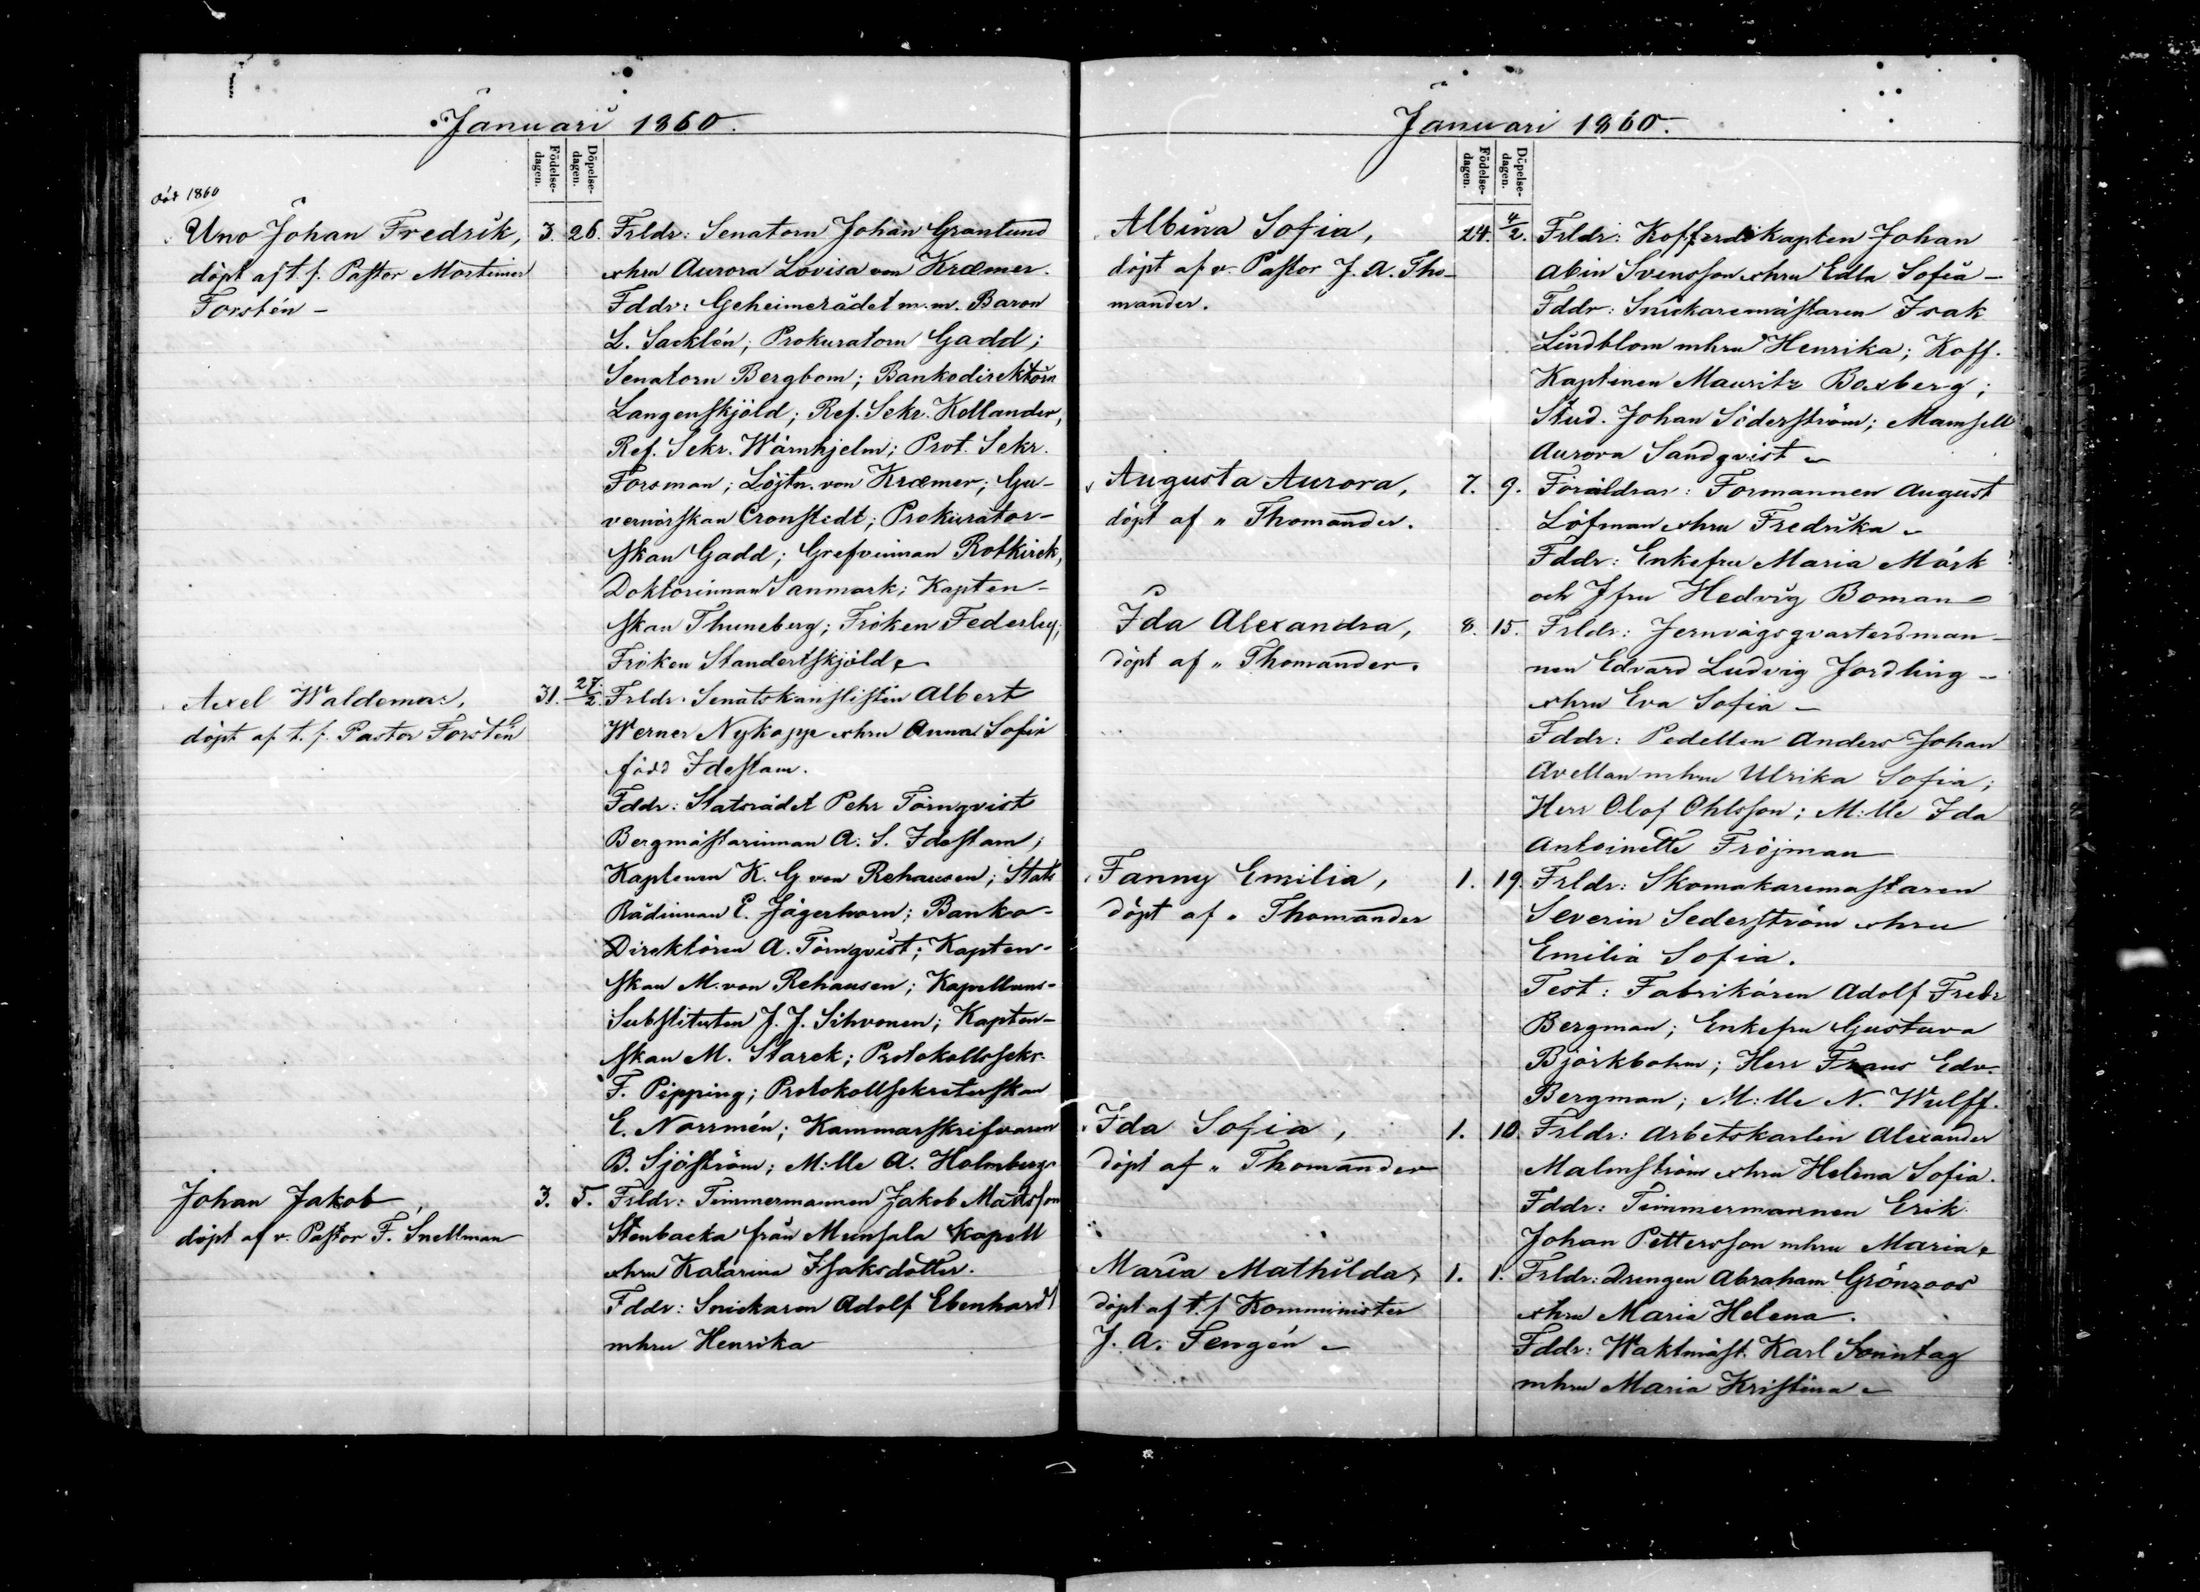 Januari 1860.
Födelse-
dagen.
Döpelse-
dagen.
död 1860
Uno Johan Fredrik,
döpt af t. f. Pastor Mortimer
Forstén –
3. 26.
Frldr: Senatorn Johan Granlund
o hru Aurora Lovisa von Kræmer.
Fddr: Geheimerådet m.m. Baron
L. Sacklén; Prokuratorn Gadd;
Senatorn Bergbom; Bankodirektörn
Langenskjöld; Ref. Sekr. Kellander,
Ref. Sekr. Wärnhjelm; Prot. Sekr.
Forsman; Löjtn. von Kræmer; Gu-
vernörskan Cronstedt; Prokurator-
skan Gadd; Grefvinnan Rotkirck,
Doktorinnan Sanmark; Kapten-
skan Thuneberg; Fröken Federley;
Fröken Standertskjöld
Axel Waldemar,
döpt af t. f. Pastor Forstén
31. 27/2.
Frldr. Senatskanslisten Albert
Werner Nykopp o hru Anna Sofia
född Idestam.
Fddr: Statsrådet Pehr Törnqvist
Bergmästarinnan A. S. Idestam;
Kaptenen K. G. von Rehausen; Stats
Rådinnan E. Jägerhorn; Banko-
Direktören A. Törnqvist; Kapten-
skan M. von Rehausen; Kapellans-
Substituten J. J. Sihvonen; Kapten-
skan M. Starck; Protokollssekr.
F. Pipping; Protokollsekreterskan
E. Norrmén; Kammarskrifvaren
B. Sjöström; M:lle A. Holmberg
Johan Jakob,
döpt af v. Pastor F. Snellman
3. 5.
Frldr: Timmermannen Jakob Matsson
Stenbacka från Munsala Kapell
o hru Katarina Isaksdotter.
Fddr: Snickaren Adolf Ebenhardt
m hru Henrika
Januari 1860.
Födelse-
dagen.
Döpelse-
dagen.
Albina Sofia,
döpt af v. Pastor J. A. Tho-
mander.
24. 4/2.
Frldr: Kofferdikapten Johan
Abin Svensson o hru Edla Sofia –
Fddr: Snickaremästaren Isak
Lindblom m hru Henrika; Koff.
Kaptenen Mauritz Boxberg;
Stud. Johan Söderström; Mamsell
Aurora Sandqvist
Augusta Aurora,
döpt af „ Thomander.
7. 9.
Föräldrar: Formannen August
Löfman o hru Fredrika
Fddr: Enkefru Maria Mörk
och Jfru Hedvig Boman
Ida Alexandra,
döpt af „ Thomander.
8. 15.
Frldr: Jernvägsqvartersman-
nen Edvard Ludvig Jordling
o hru Eva Sofia –
Fddr: Pedellen Anders Johan
Avellan m hru Ulrika Sofia;
Herr Olof Ohlsson; M:lle Ida
Antoinette Fröjman
Fanny Emilia,
döpt af „ Thomander
1. 19.
Frldr: Skomakaremastaren
Severin Sederström o hru
Emilia Sofia.
Test: Fabrikören Adolf Fredr
Bergman; Enkefru Gustava
Björkbohm; Herr Frans Edv.
Bergman; M:lle N. Wulff.
Ida Sofia,
döpt af „ Thomander
1. 10.
Frldr: Arbetskarlen Alexander
Malmström o hru Helena Sofia.
Fddr: Timmermannen Erik
Johan Pettersson m hru Maria
Maria Mathilda,
döpt af t. f. Komminister
J. A. Tengén
1. 1.
Frldr: Drengen Abraham Grönroos
o hru Maria Helena.
Fddr: Waktmäst. Karl Sonntag
m hru Maria Kristina